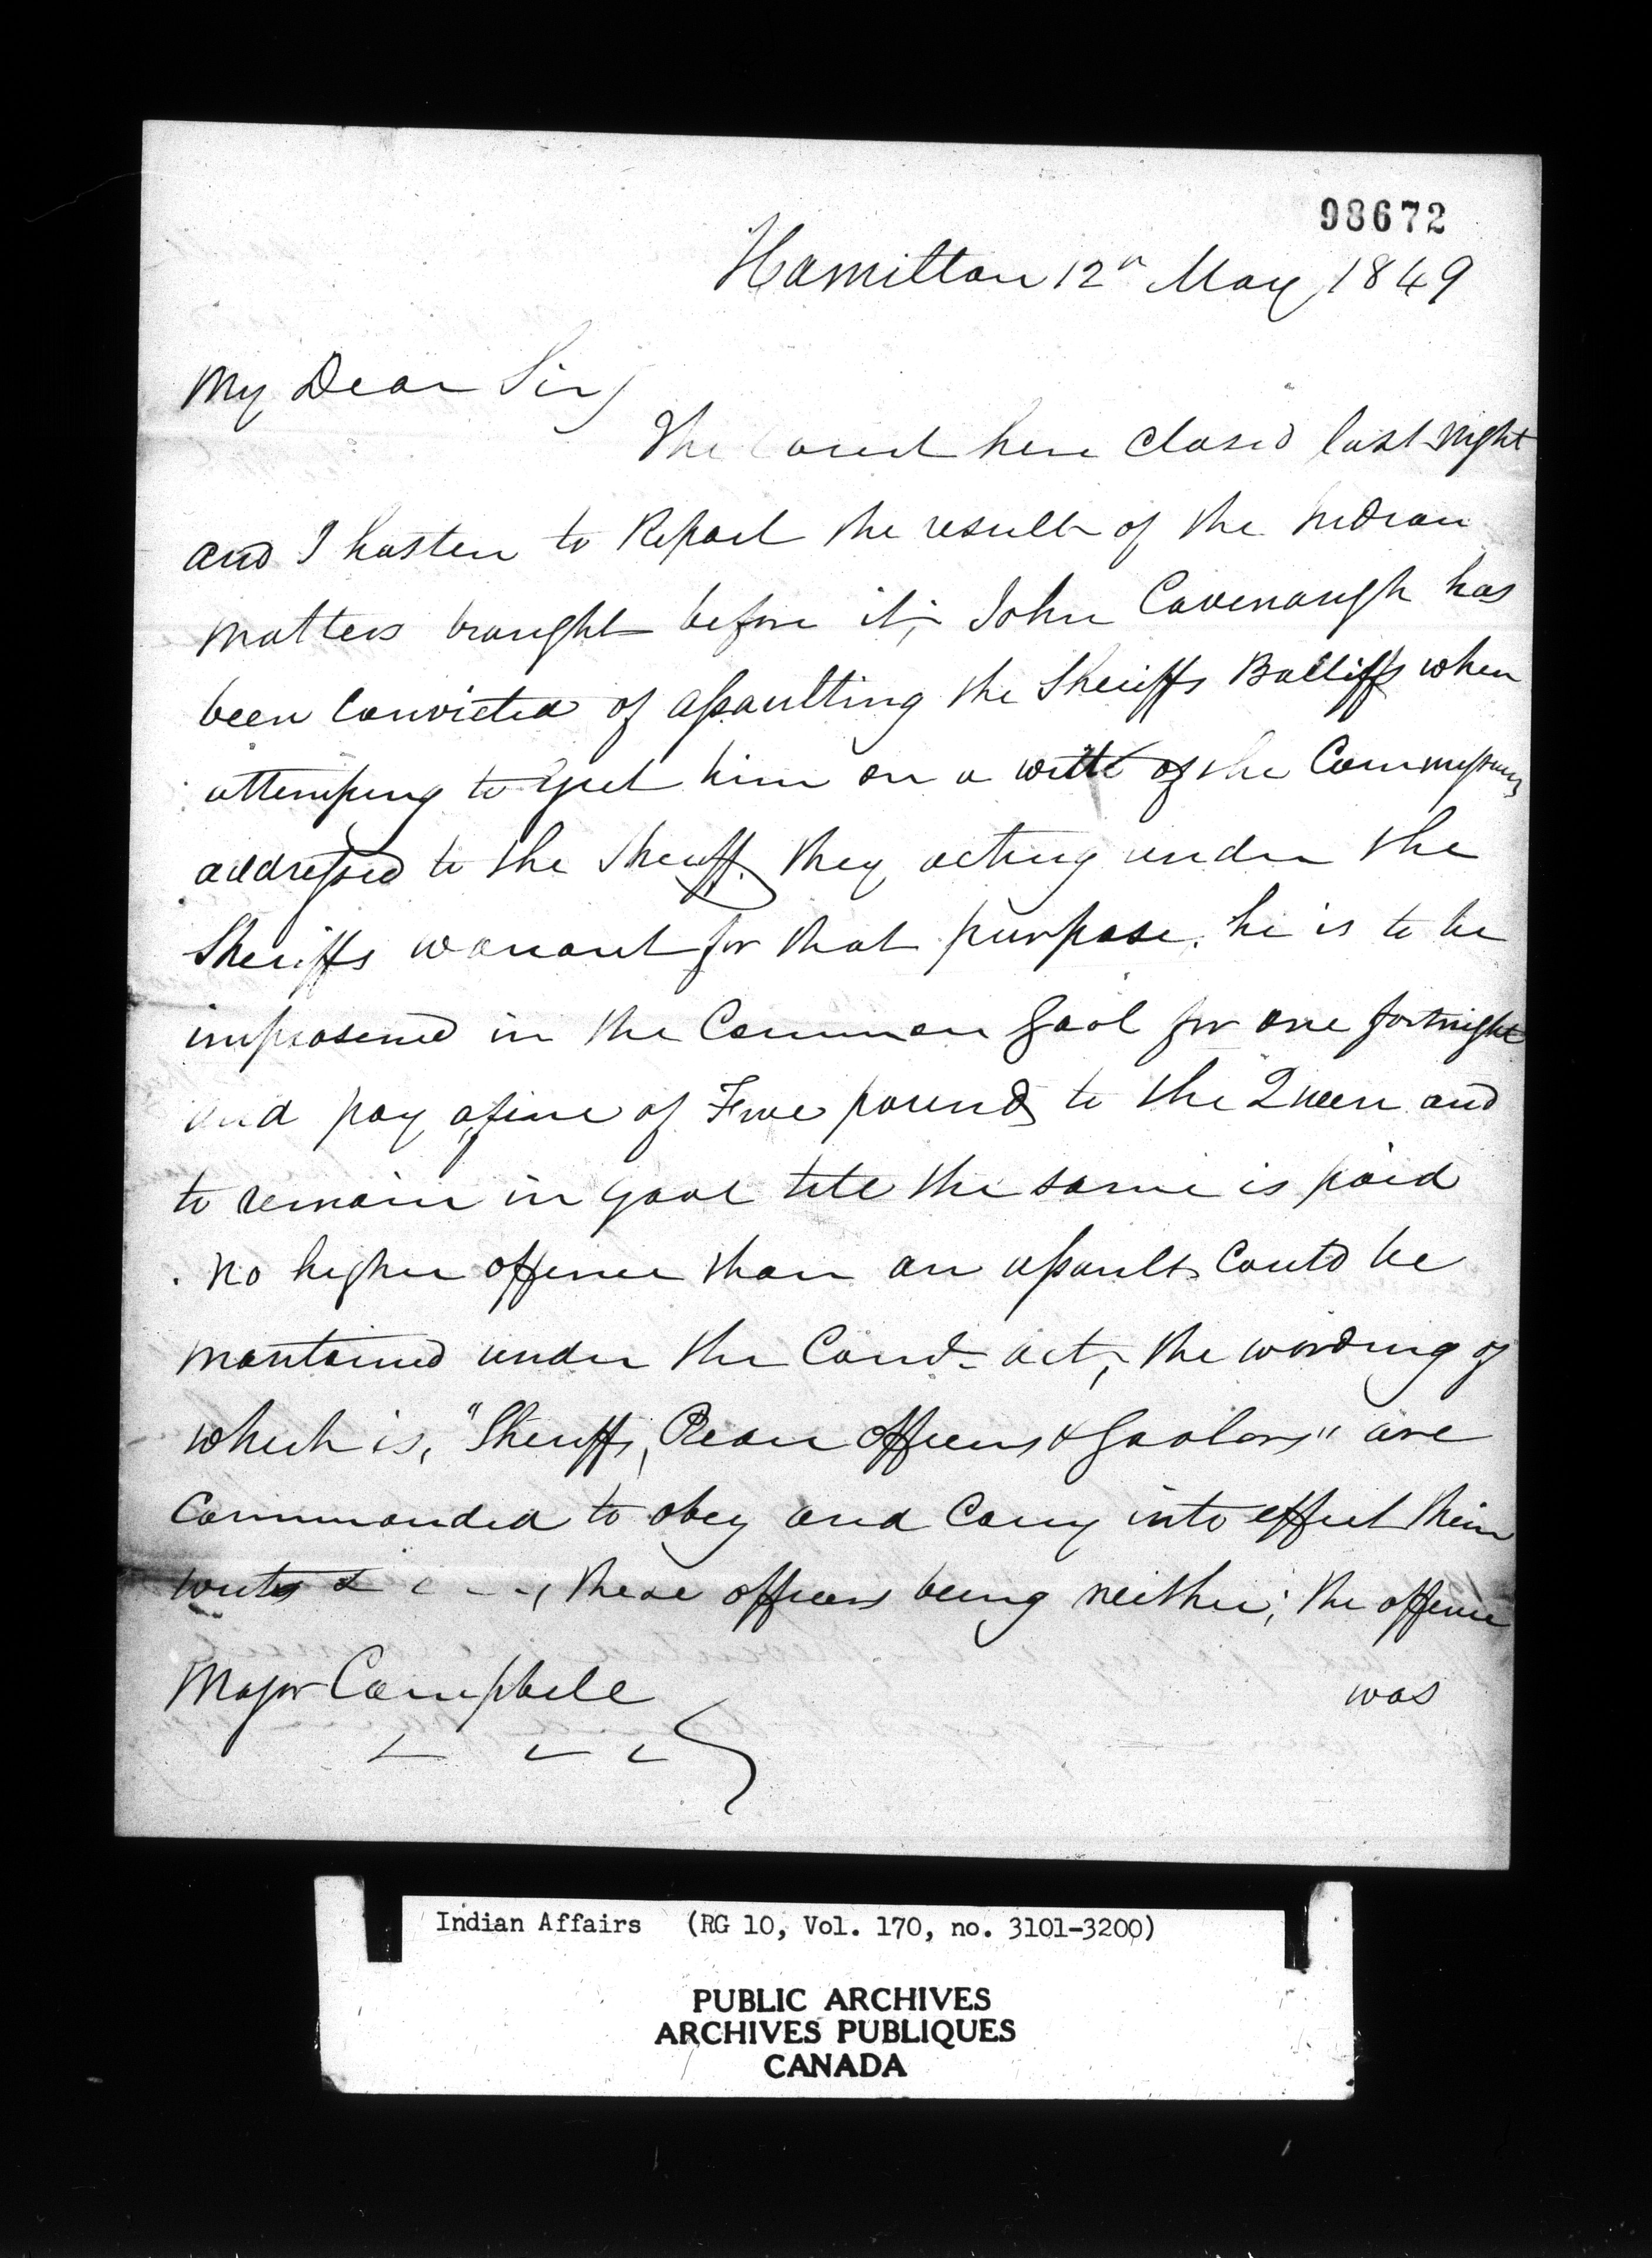 98672
Hamilton 12th May 1849
My Dear Sir,
The Court here closed last night
and I hasten to Report the result of the Indian
matters brought before it; John Cavenaugh has
been Convicted of assaulting the Sheriffs Bailiffs when
attempting to eject him on a writ of the Commissioners
addressed to the Sheriff. they acting under the
Sheriffs warrant for that purpose. he is to be
imprisoned in the Common Gaol for one fortnight
and pay a fine of Five pounds to the Queen and
to remain in gaol till the same is paid
. No higher offence than an assault could be
mantained under the act, the wording of
which is, "Sheriffs, Peace officers & Gaolers" are
Commanded to obey and Carry into effect their
writs & c - -, these officers being neither; the offence
Major Campbell
was
Indian Affairs (RG 10, Vol. 170, no. 3101-3200)
PUBLIC ARCHIVES
ARCHIVES PUBLIQUES
CANADA